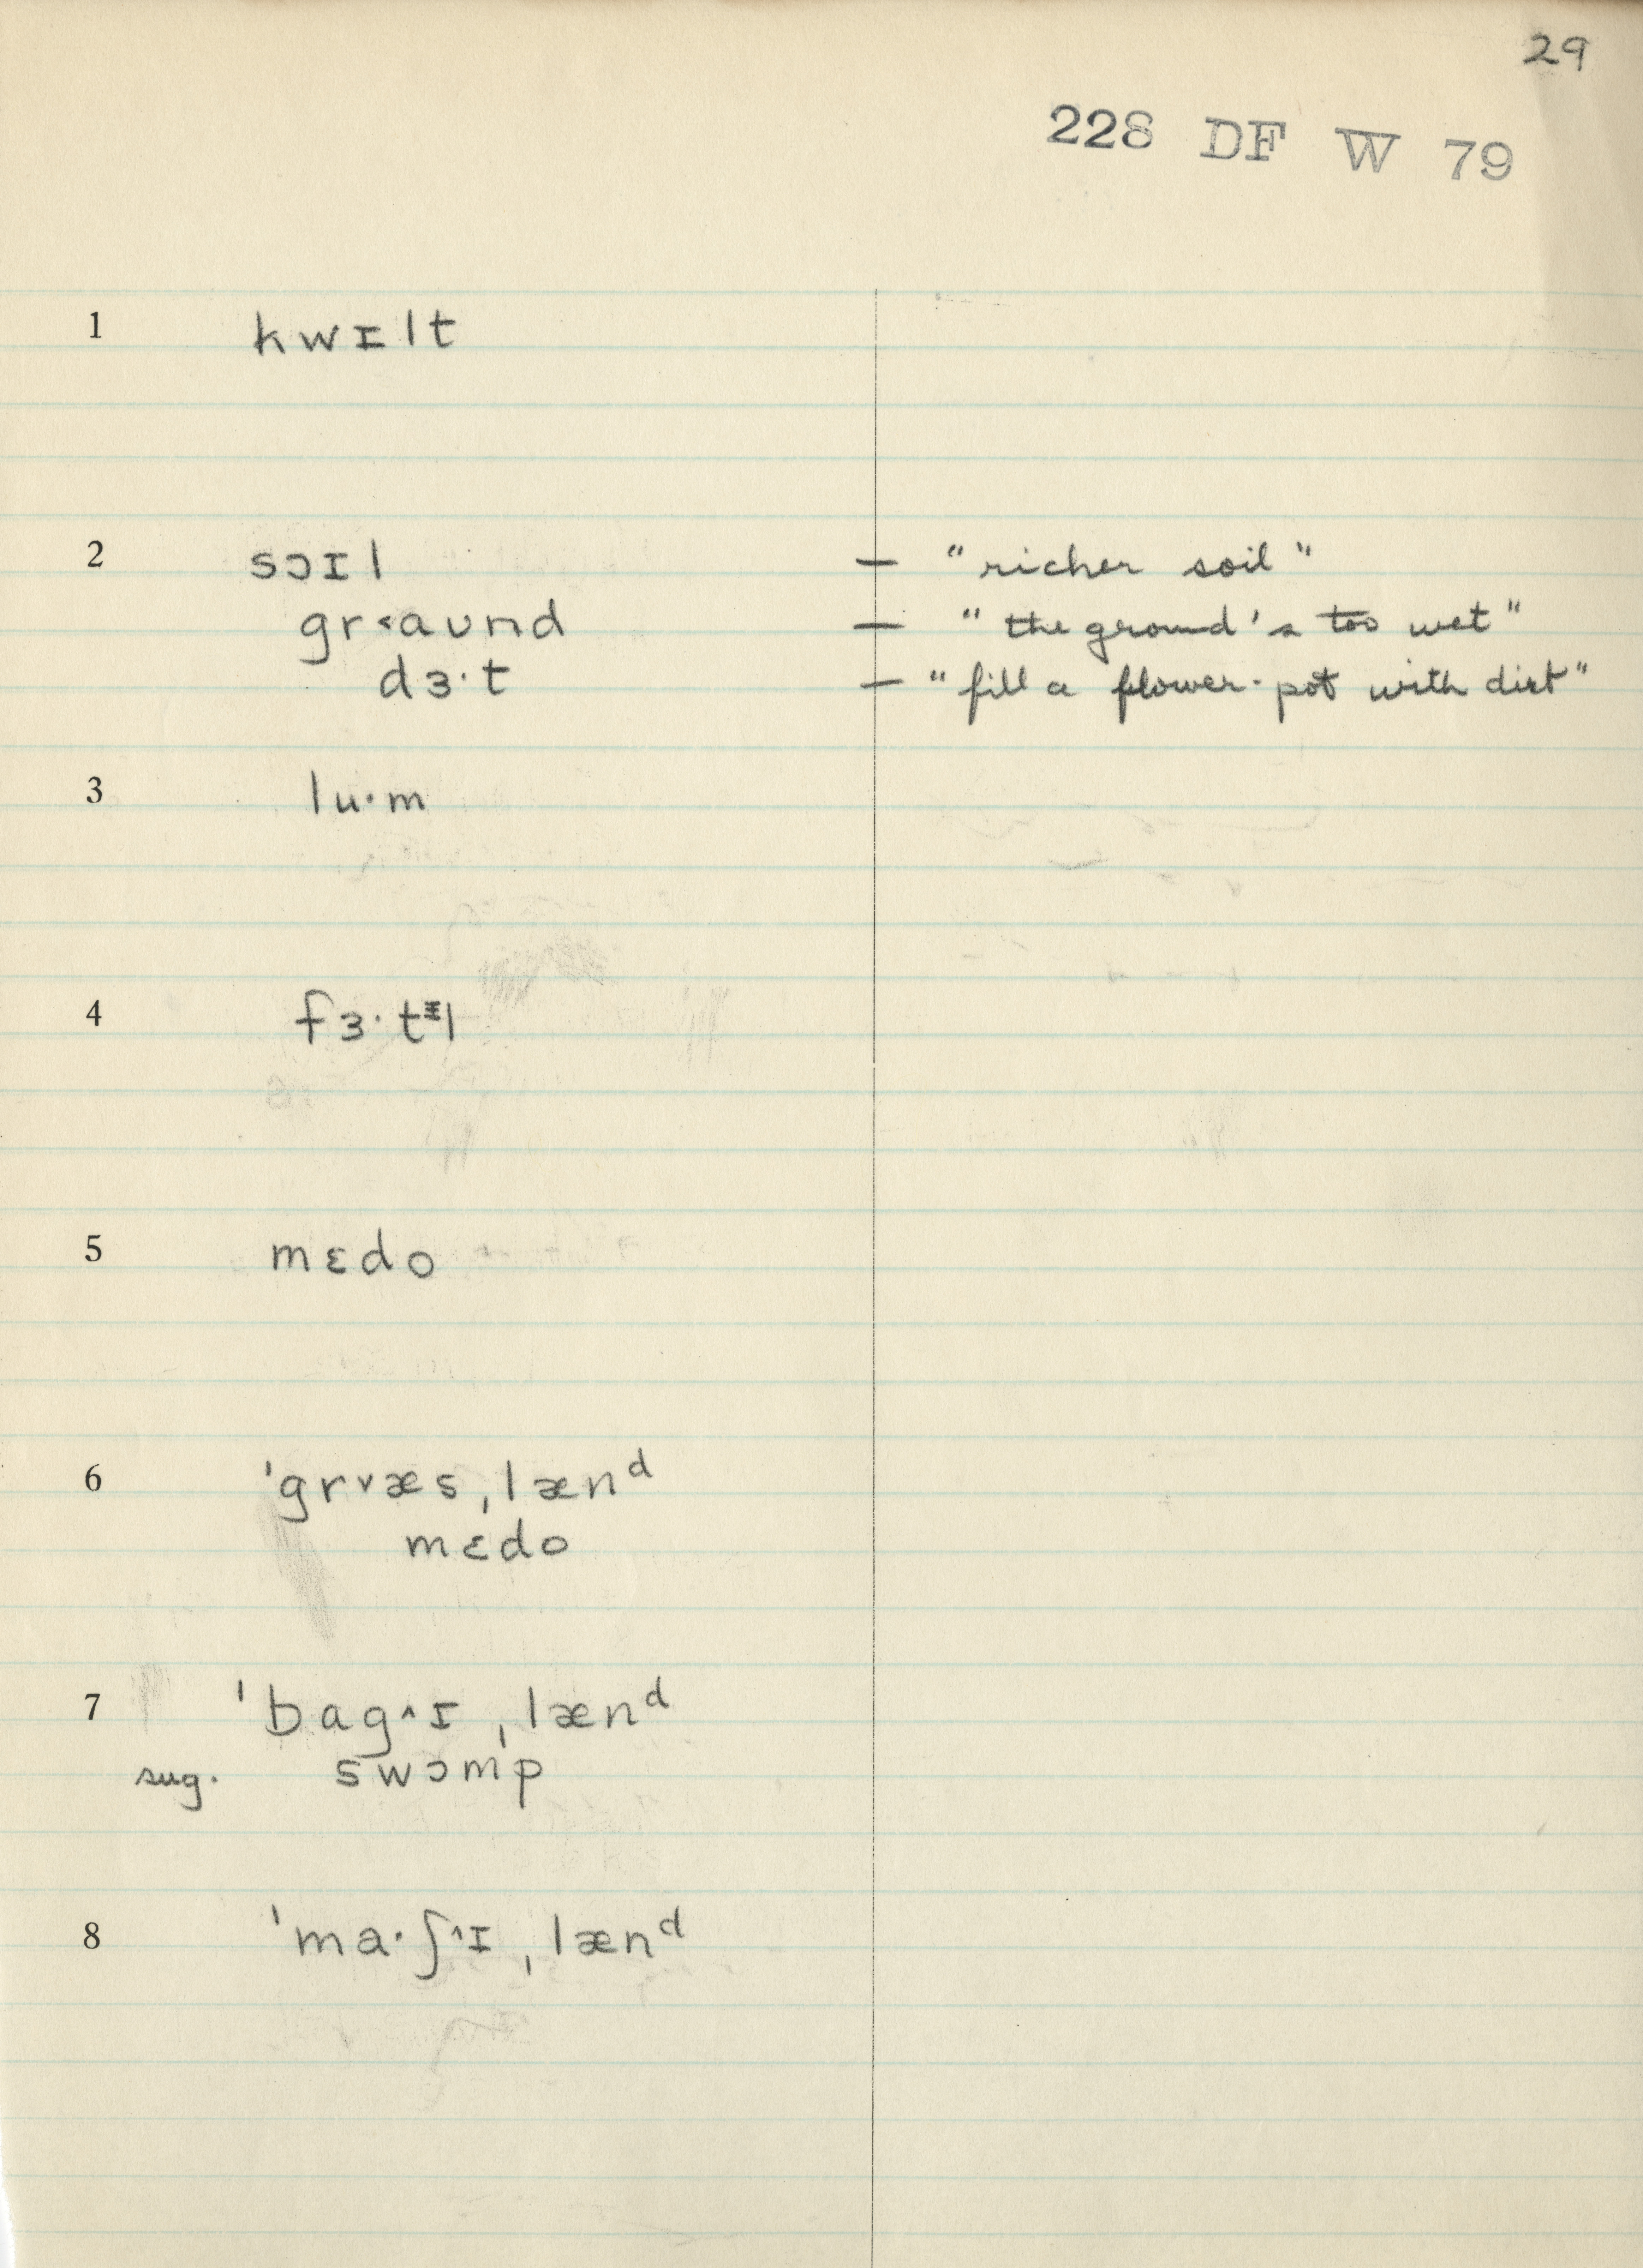 29
228 DF W 79
1 kwɪlt
2 sɔɪl — "richer soil"
gr˂aʊnd — "the ground's too wet"
dɜ·t — "fill a flower-pot with dirt"
3 lu·m
4 fɜ·tᵻl
5 mɛdo
6 ˈgr˅æsˌlænᵈ
mɛdo
7 ˈbag˄ɪˌlænᵈ
sug. swɔmp
8 ˈma·ʃ˄ɪˌlænᵈ